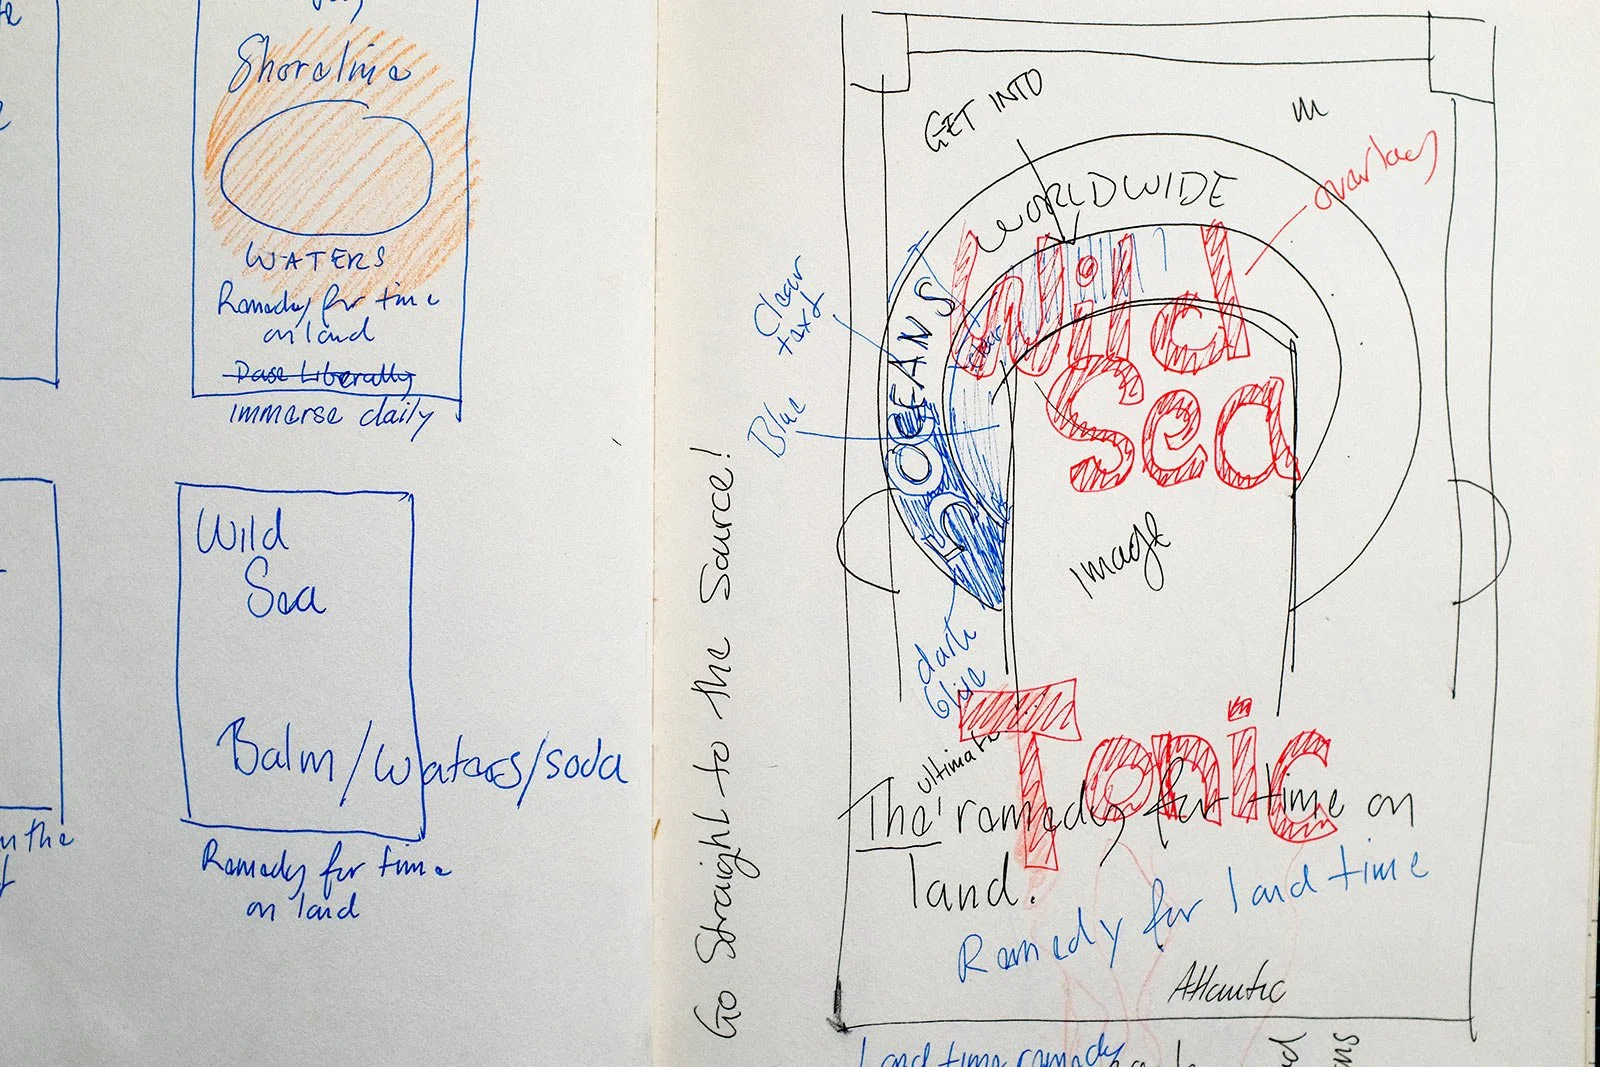 Shoreline
WATERS
Remedy for time
on land
Dase Liberally
immerse daily
Wild
Sea
Balm/Waters/soda
Remedy for time
on land
n the
Go Straight to the Source!
GET INTO
WORLDWIDE
overlay
5 OCEANS
Clear
text
Blue
dark
Wild
Sea
Image
Tonic
ultimate
The remedy for time on
land.
Remedy for land time
Atlantic
Land time remedy